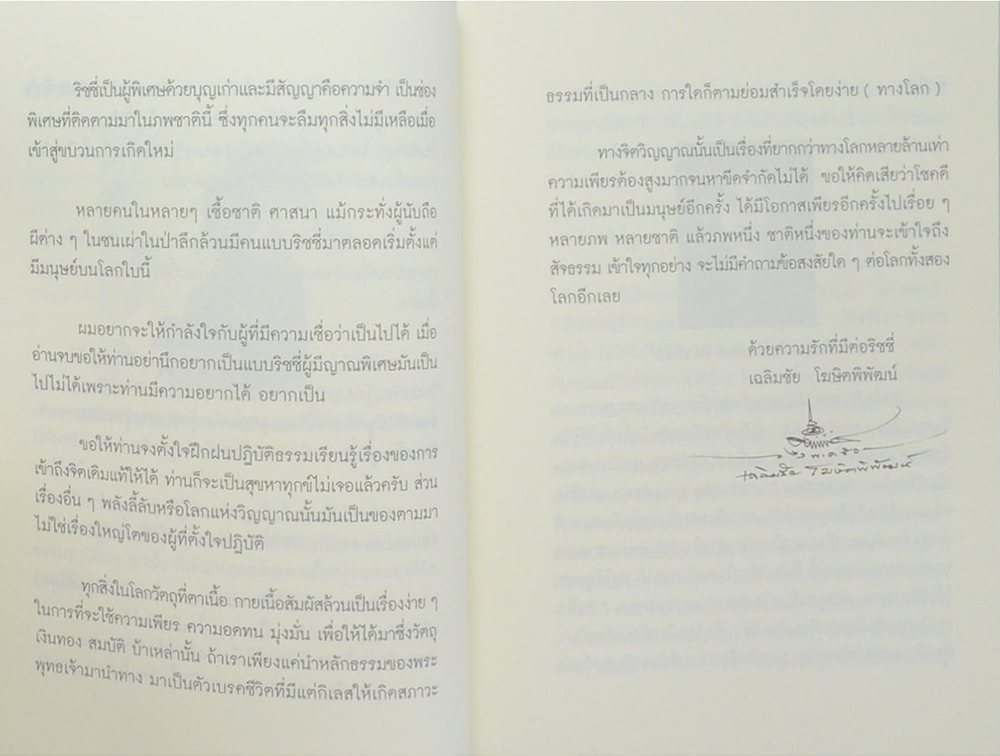 ริชชี่เป็นผู้พิเศษด้วยบุญเก่าและมีสัญญาคือความจำ เป็นช่อง
พิเศษที่ติดตามมาในภพชาตินี้ ซึ่งทุกคนจะลืมทุกสิ่งไม่มีเหลือเมื่อ
เข้าสู่ขบวนการเกิดใหม่
หลายคนในหลายๆ เชื้อชาติ ศาสนา แม้กระทั่งผู้นับถือ
ผีต่าง ๆ ในชนเผ่าในป่าลึกล้วนมีคนแบบริชชี่มาตลอดเริ่มตั้งแต่
มีมนุษย์บนโลกใบนี้
ผมอยากจะให้กำลังใจกับผู้ที่มีความเชื่อว่าเป็นไปได้ เมื่อ
อ่านจบขอให้ท่านอย่านึกอยากเป็นแบบริชชี่ผู้มีญาณพิเศษมันเป็น
ไปไม่ได้เพราะท่านมีความอยากได้ อยากเป็น
ขอให้ท่านจงตั้งใจฝึกฝนปฏิบัติธรรมเรียนรู้เรื่องของการ
เข้าถึงจิตเดิมแท้ให้ได้ ท่านก็จะเป็นสุขหาทุกข์ไม่เจอแล้วครับ ส่วน
เรื่องอื่น ๆ พลังลี้ลับหรือโลกแห่งวิญญาณนั้นมันเป็นของตามมา
ไม่ใช่เรื่องใหญ่โตของผู้ที่ตั้งใจปฏิบัติ
ทุกสิ่งในโลกวัตถุที่ตาเนื้อ กายเนื้อสัมผัสล้วนเป็นเรื่องง่าย ๆ
ในการที่จะใช้ความเพียร ความอดทน มุ่งมั่น เพื่อให้ได้มาซึ่งวัตถุ
เงินทอง สมบัติ บ้าเหล่านั้น ถ้าเราเพียงแค่นำหลักธรรมของพระ
พุทธเจ้ามานำทาง มาเป็นตัวเบรคชีวิตที่มีแต่กิเลสให้เกิดสภาวะ
ธรรมที่เป็นกลาง การใดก็ตามย่อมสำเร็จโดยง่าย ( ทางโลก )
ทางจิตวิญญาณนั้นเป็นเรื่องที่ยากกว่าทางโลกหลายล้านเท่า
ความเพียรต้องสูงมากจนหาขีดจำกัดไม่ได้ ขอให้คิดเสียว่าโชคดี
ที่ได้เกิดมาเป็นมนุษย์อีกครั้ง ได้มีโอกาสเพียรอีกครั้งไปเรื่อย ๆ
หลายภพ หลายชาติ แล้วภพหนึ่ง ชาติหนึ่งของท่านจะเข้าใจถึง
สัจธรรม เข้าใจทุกอย่าง จะไม่มีคำถามข้อสงสัยใด ๆ ต่อโลกทั้งสอง
โลกอีกเลย
ด้วยความรักที่มีต่อริชชี่
เฉลิมชัย โฆษิตพิพัฒน์
เฉลิมชัย โฆษิตพิพัฒน์